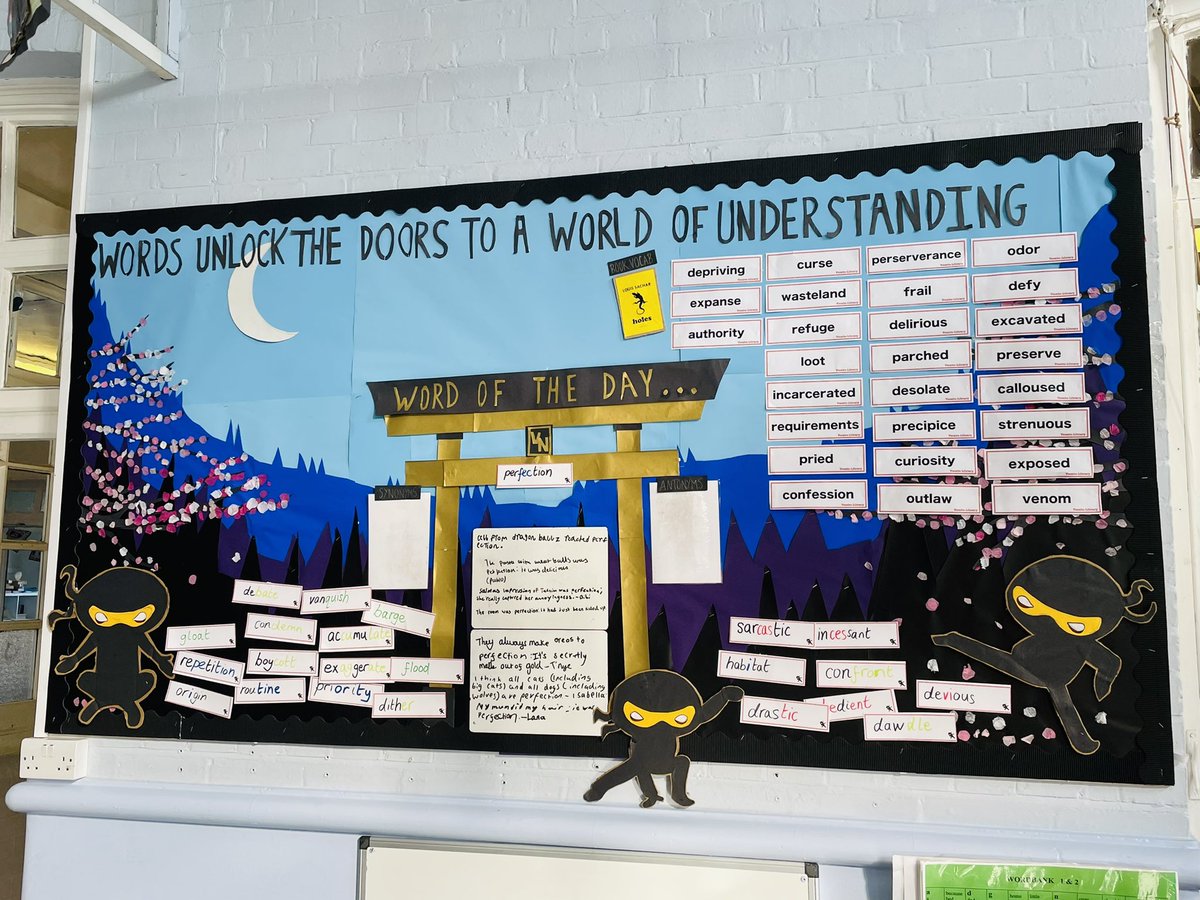 WORDS UNLOCK THE DOORS TO A WORLD OF UNDERSTANDING
BOOK VOCAB
LOUIS SACHAR
holes
depriving
curse
perserverance
odor
expanse
wasteland
frail
defy
authority
refuge
delirious
excavated
loot
parched
preserve
incarcerated
desolate
calloused
requirements
precipice
strenuous
pried
curiosity
exposed
confession
outlaw
venom
WORD OF THE DAY...
perfection
SYNONYMS
ANTONYMS
perfection.
It was delicious
The room was perfection it had just been tidied up.
They always make oreos to
perfection. It's secretly
made out of gold-
I think all cats (including
big cats) and all dogs (including
wolves) are perfection - Isabella
My mum did my hair, it was
perfection. - Lana
debate
vanquish
barge
gloat
condemn
accumulate
repetition
boycott
exaggerate
flood
origin
routine
priority
dither
sarcastic
incessant
habitat
confront
drastic
devious
dawdle
WORDBANK 1 & 2